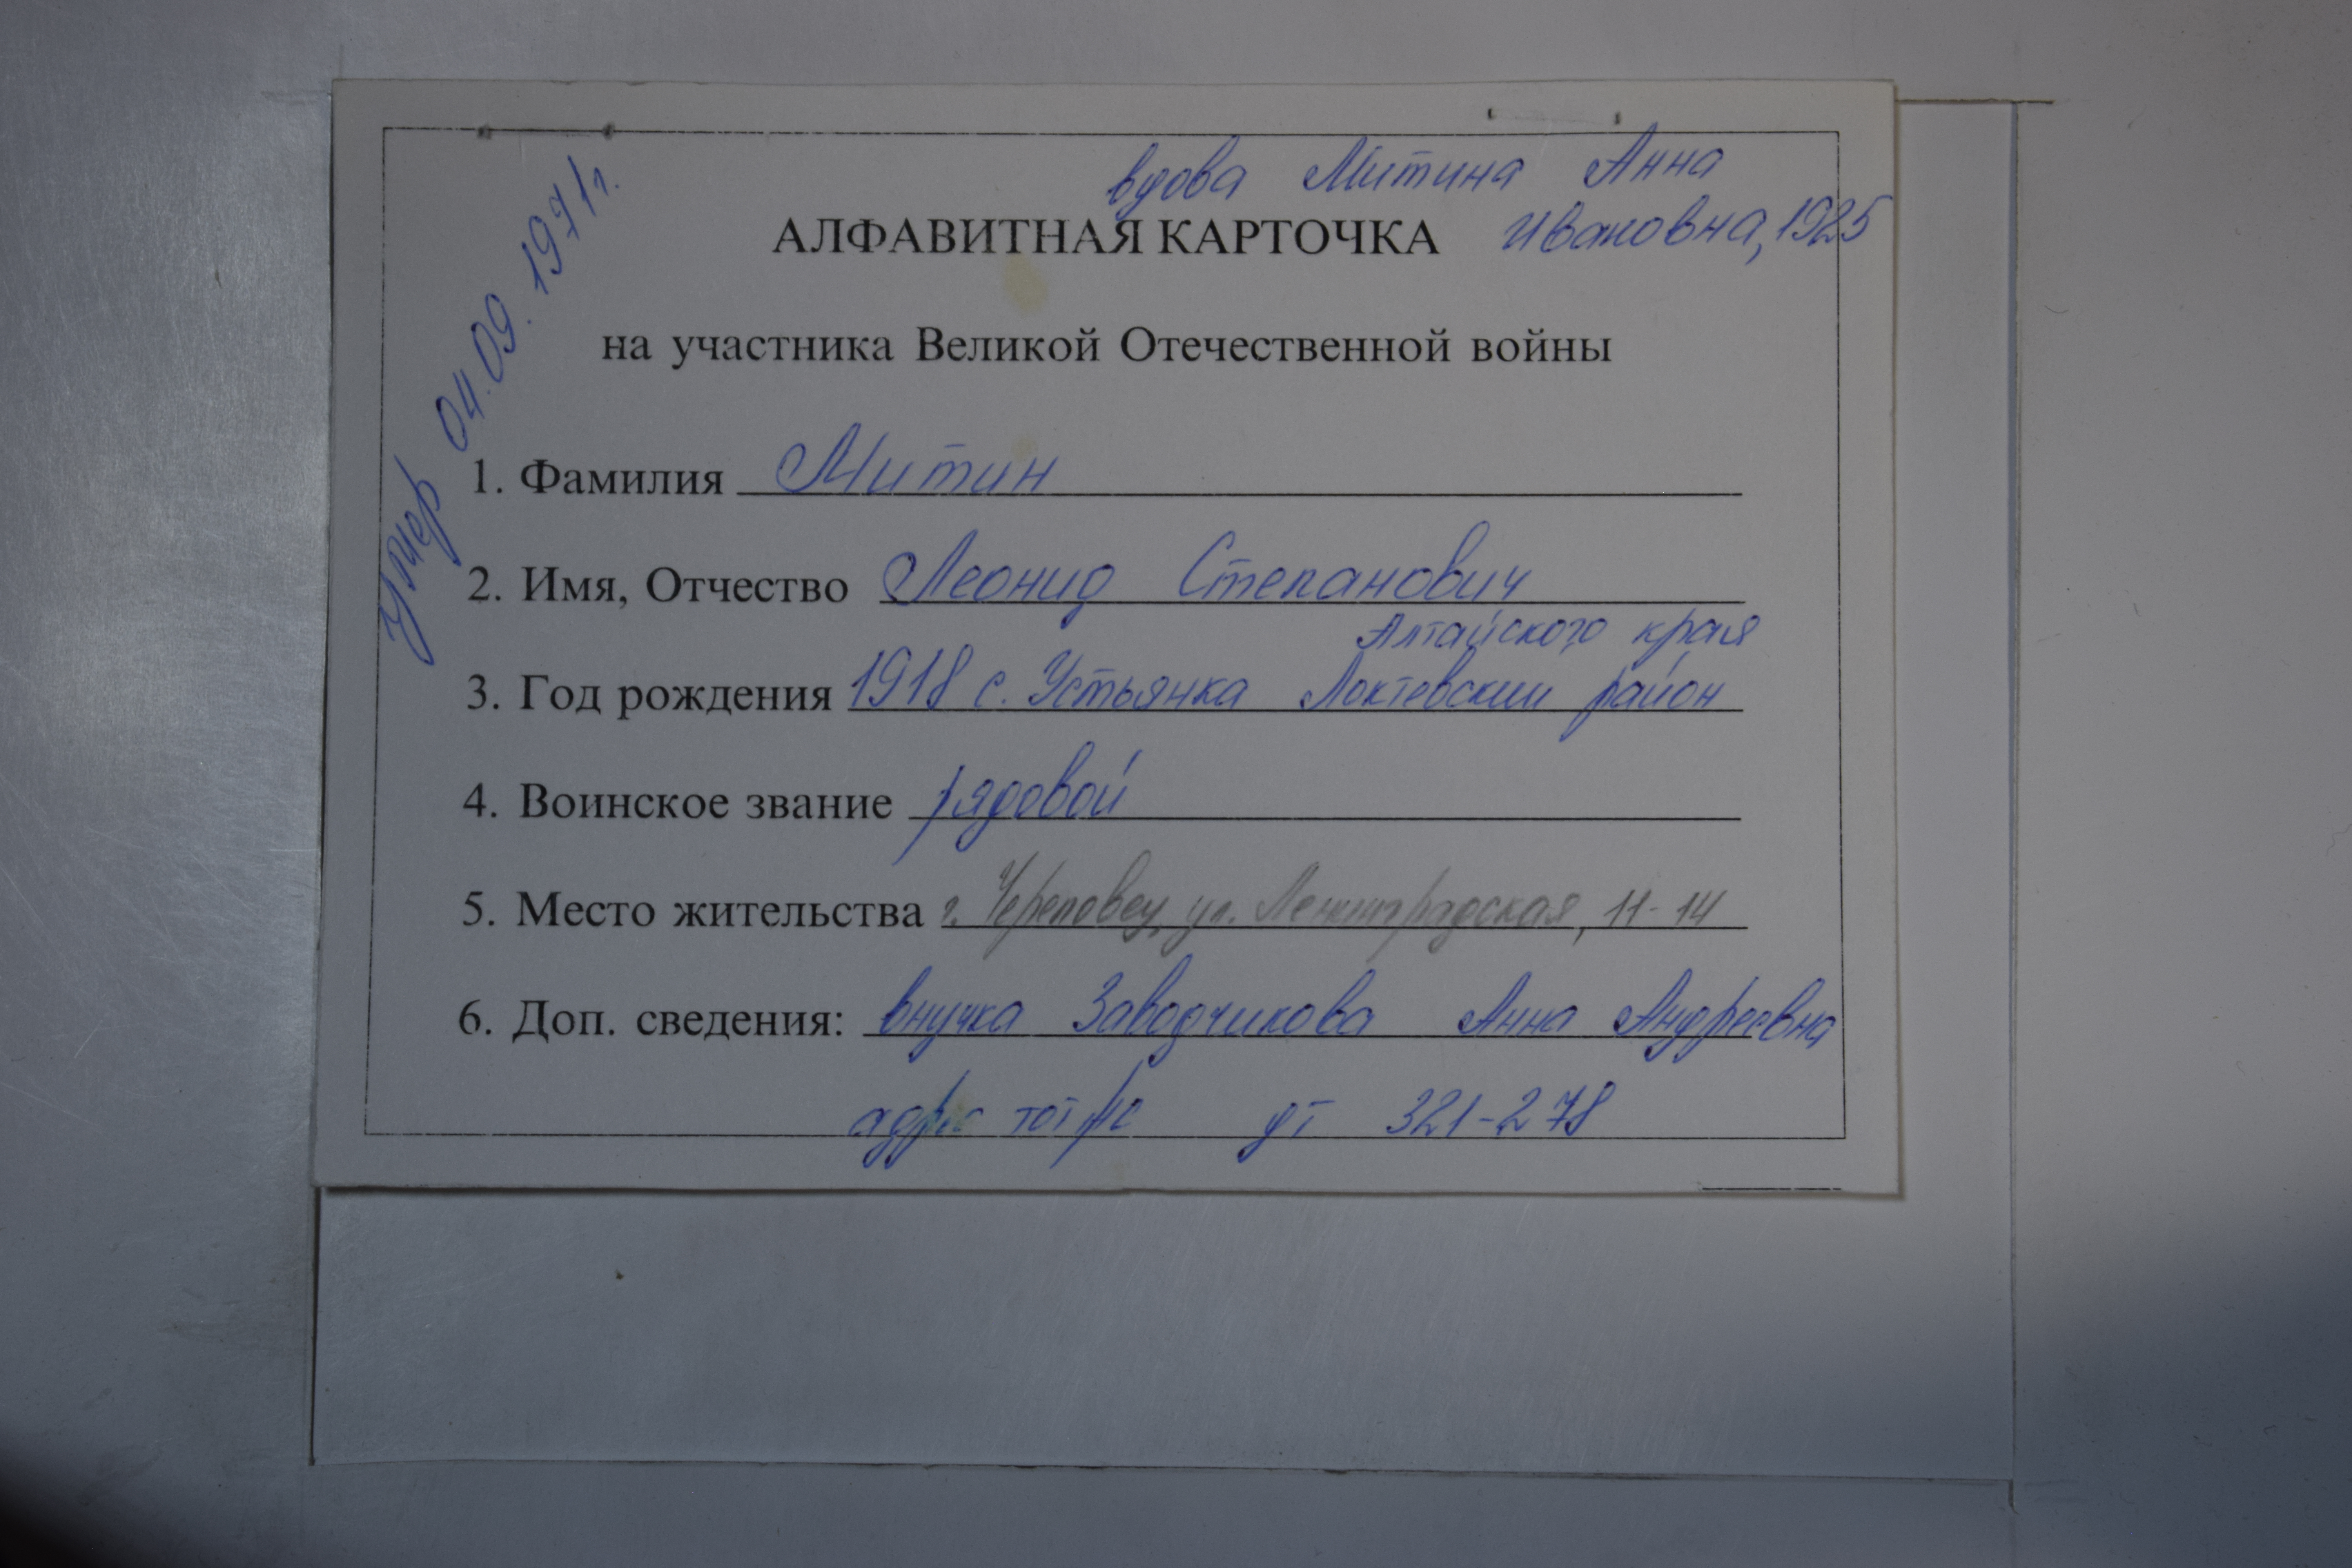 вдова Митина Анна
Ивановна, 1925
АЛФАВИТНАЯ КАРТОЧКА
на участника Великой Отечественной войны
умер 04.09.1971г.
1. Фамилия Митин
2. Имя, Отчество Леонид Степанович
Алтайского края
3. Год рождения 1918 с. Устьянка Локтевский район
4. Воинское звание рядовой
5. Место жительства г. Череповец, ул. Ленинградская, 11-14
6. Доп. сведения: внучка Заводчикова Анна Андреевна
адрес тот же дт 321-278